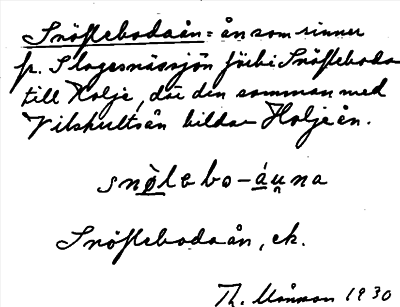 Snöflebodaån = ån som rinner
fr. Slagesnässjön förbi Snöfleboda
till Holje, där den samman med
Vilshultsån bildar Holjeån.
snò̲lebo-á̲u̲na
Snöflebodaån, ek.
Th. Månsson 1930